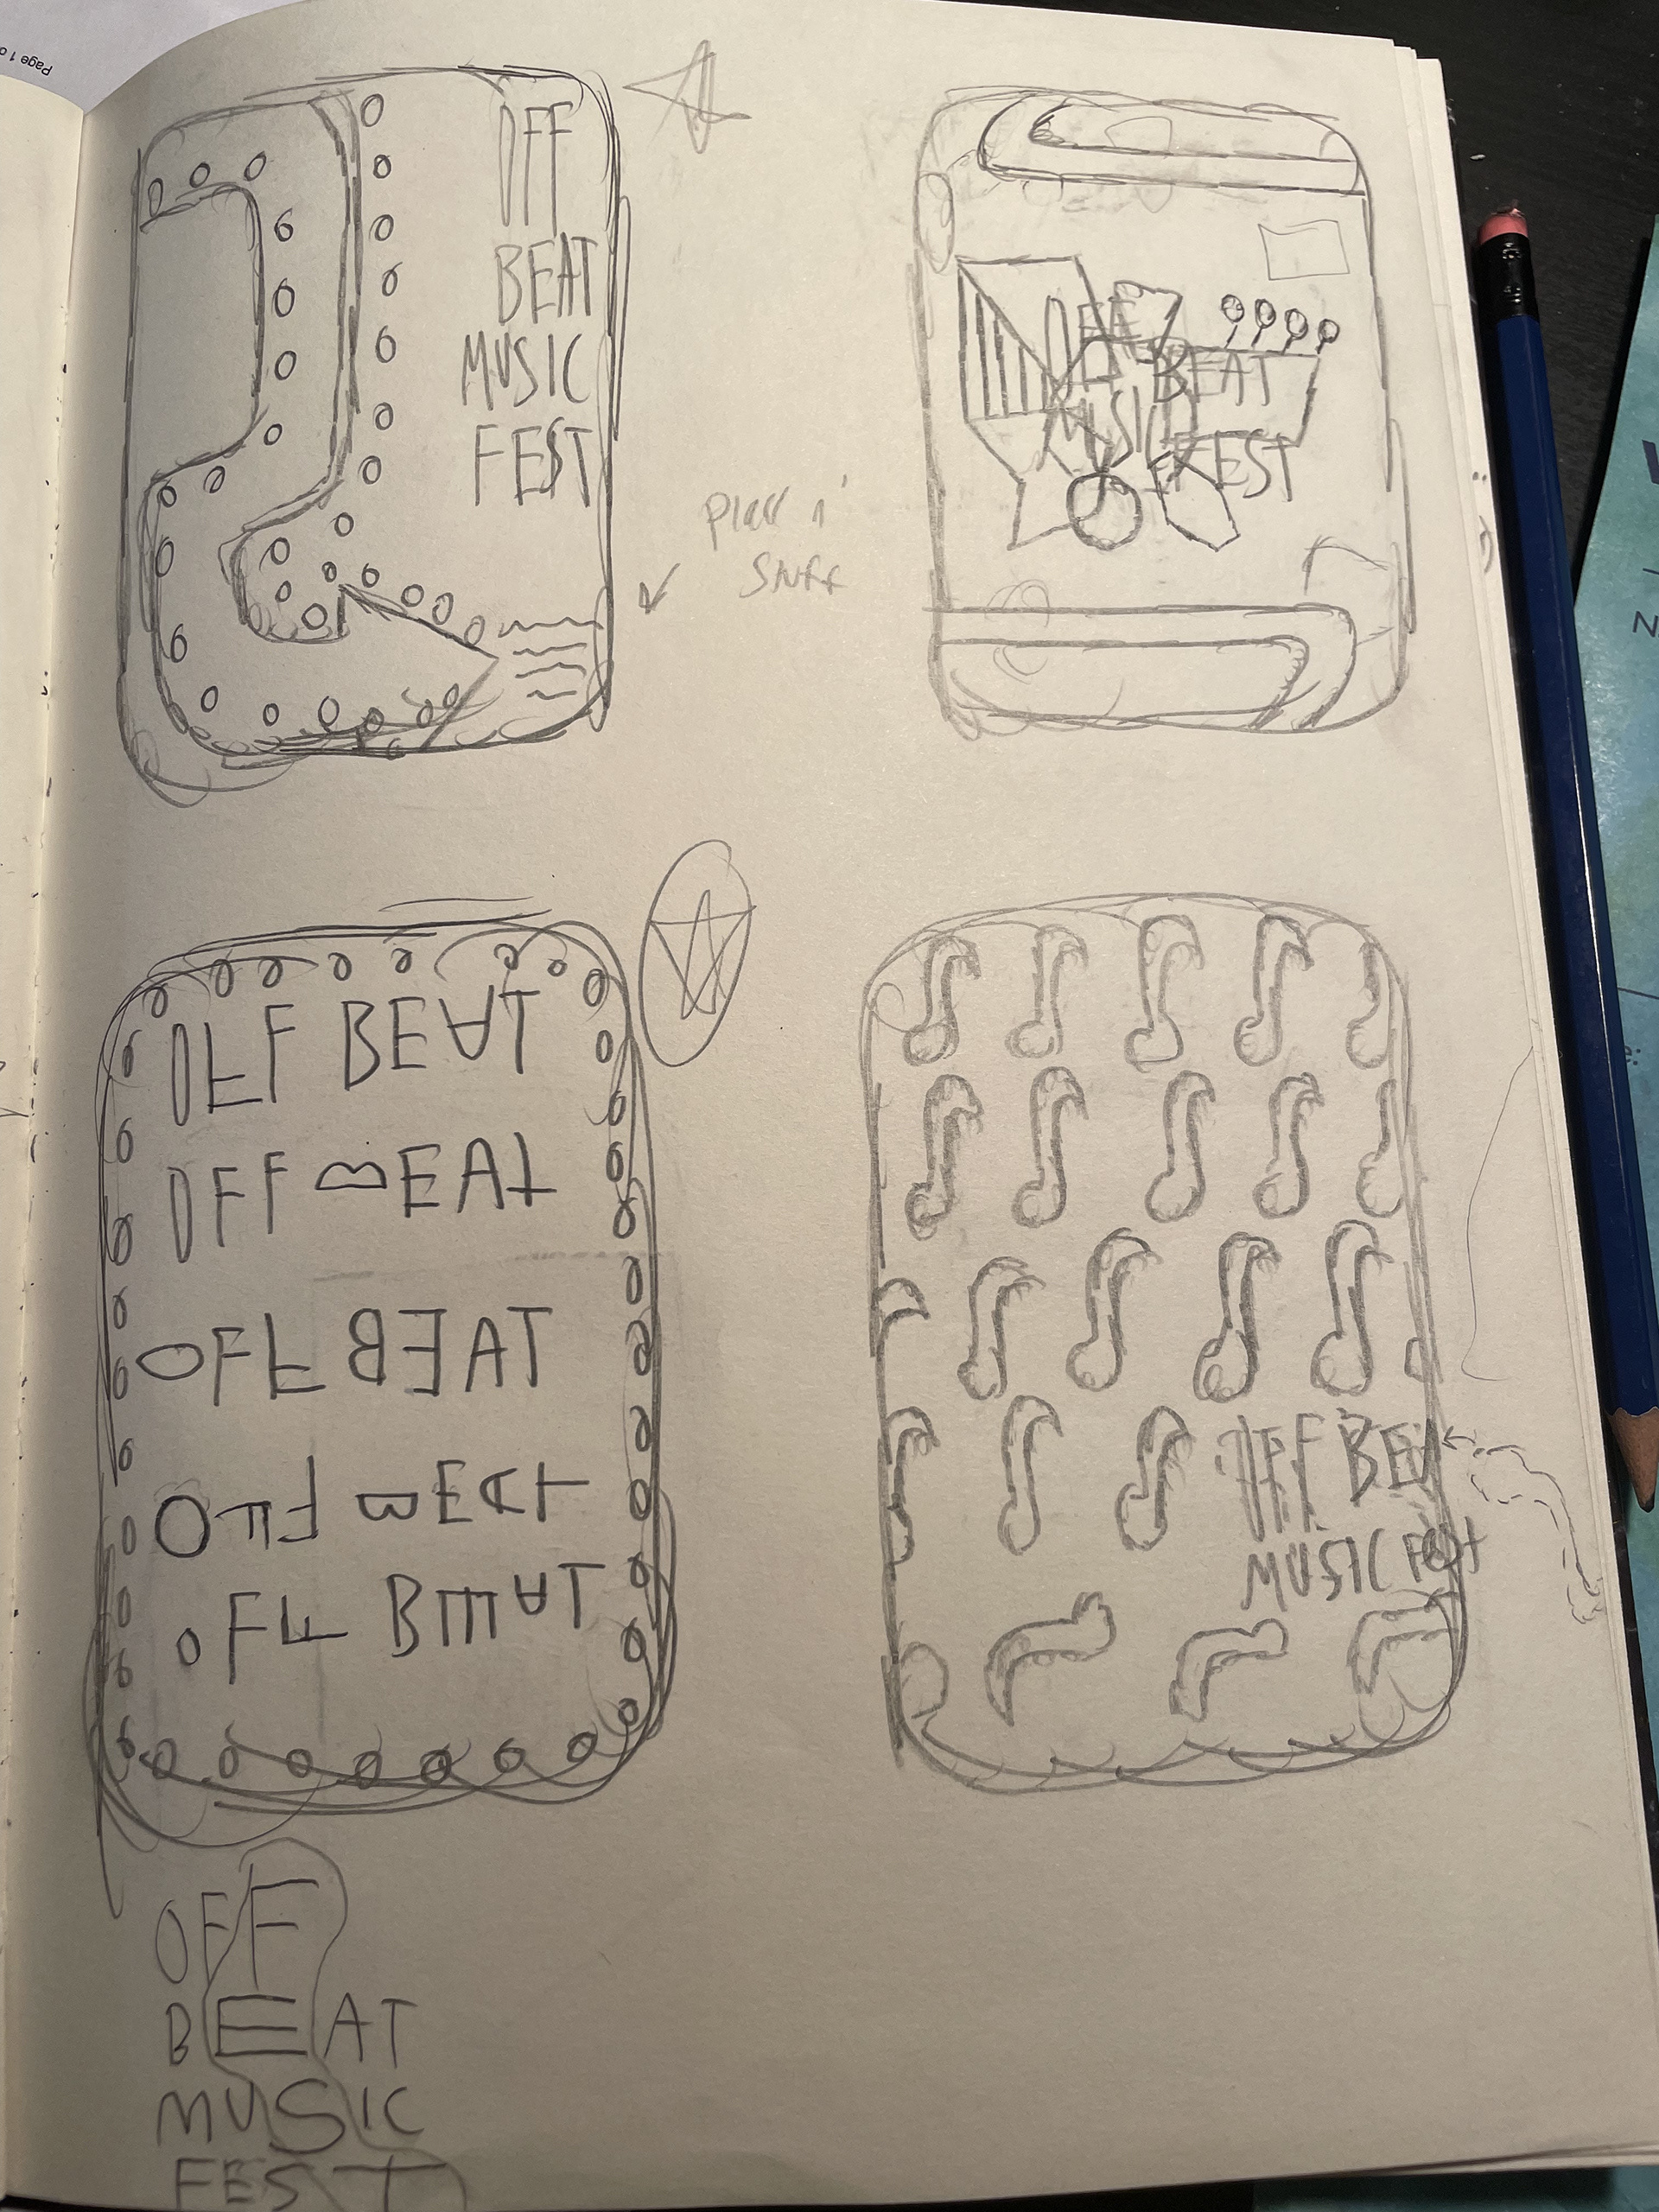 Page 1 o
OFF
BEAT
MUSIC
FEST
OFF
BEAT
MUSIC
FEST
stuff
OFF BEAT
OFF BEAT
OFF BEAT
OFF BEAT
OFF BEAT
OFF BEA
MUSIC FEST
OFF
BEAT
MUSIC
FEST